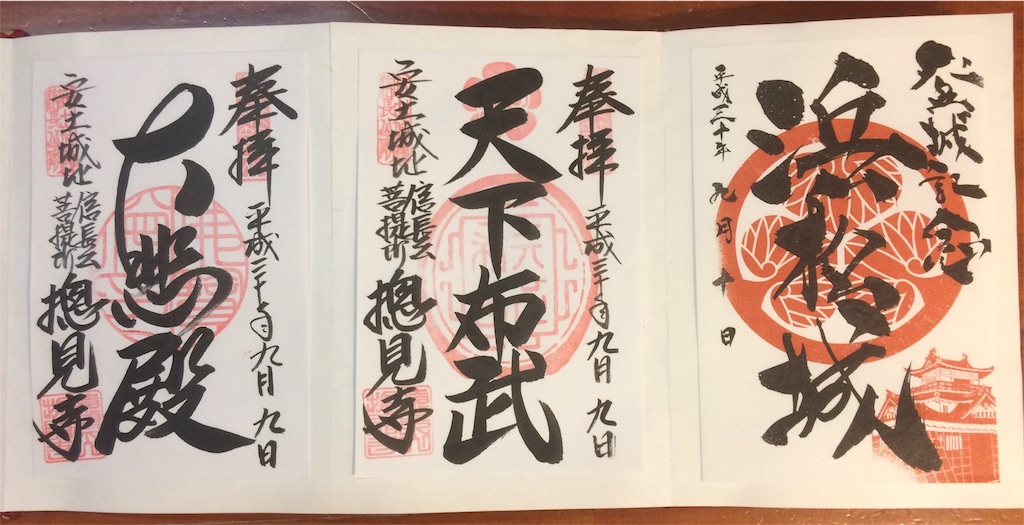 奉拝
平成三十年九月九日
大悲殿
安土城址
信長公
菩提所
摠見寺
奉拝
平成三十年九月九日
天下布武
安土城址
信長公
菩提所
摠見寺
登城記念
浜松城
平成三十年九月十日